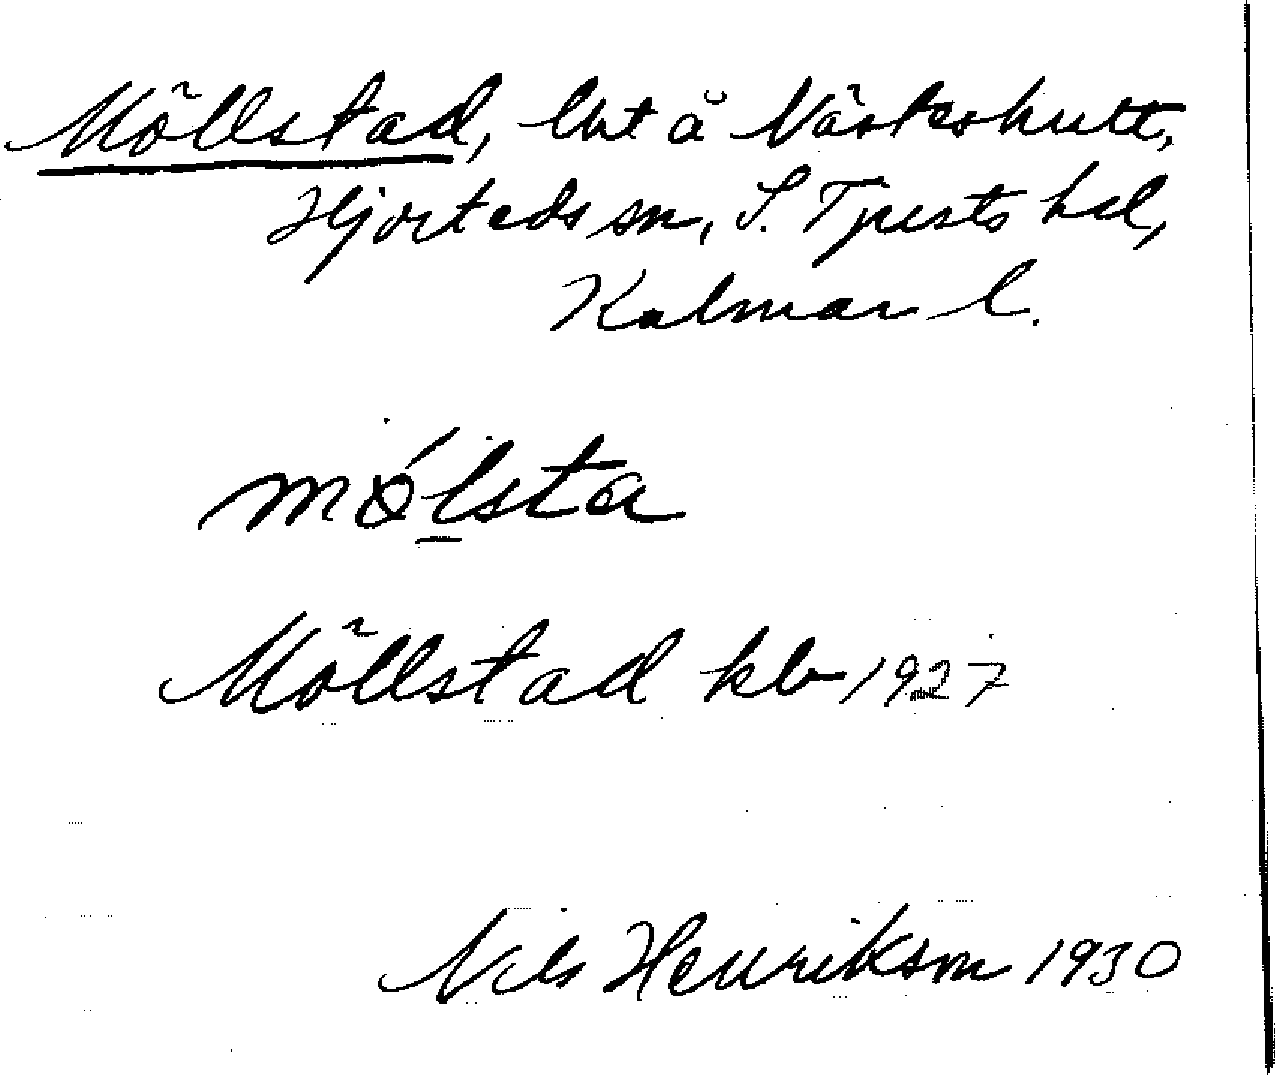 Möllstad, lht å Näskeshult,
Hjorteds sn, S. Tjusts hd,
Kalmar l.
mǿlsta
Möllstad kb 1927
Nils Henrikson 1930